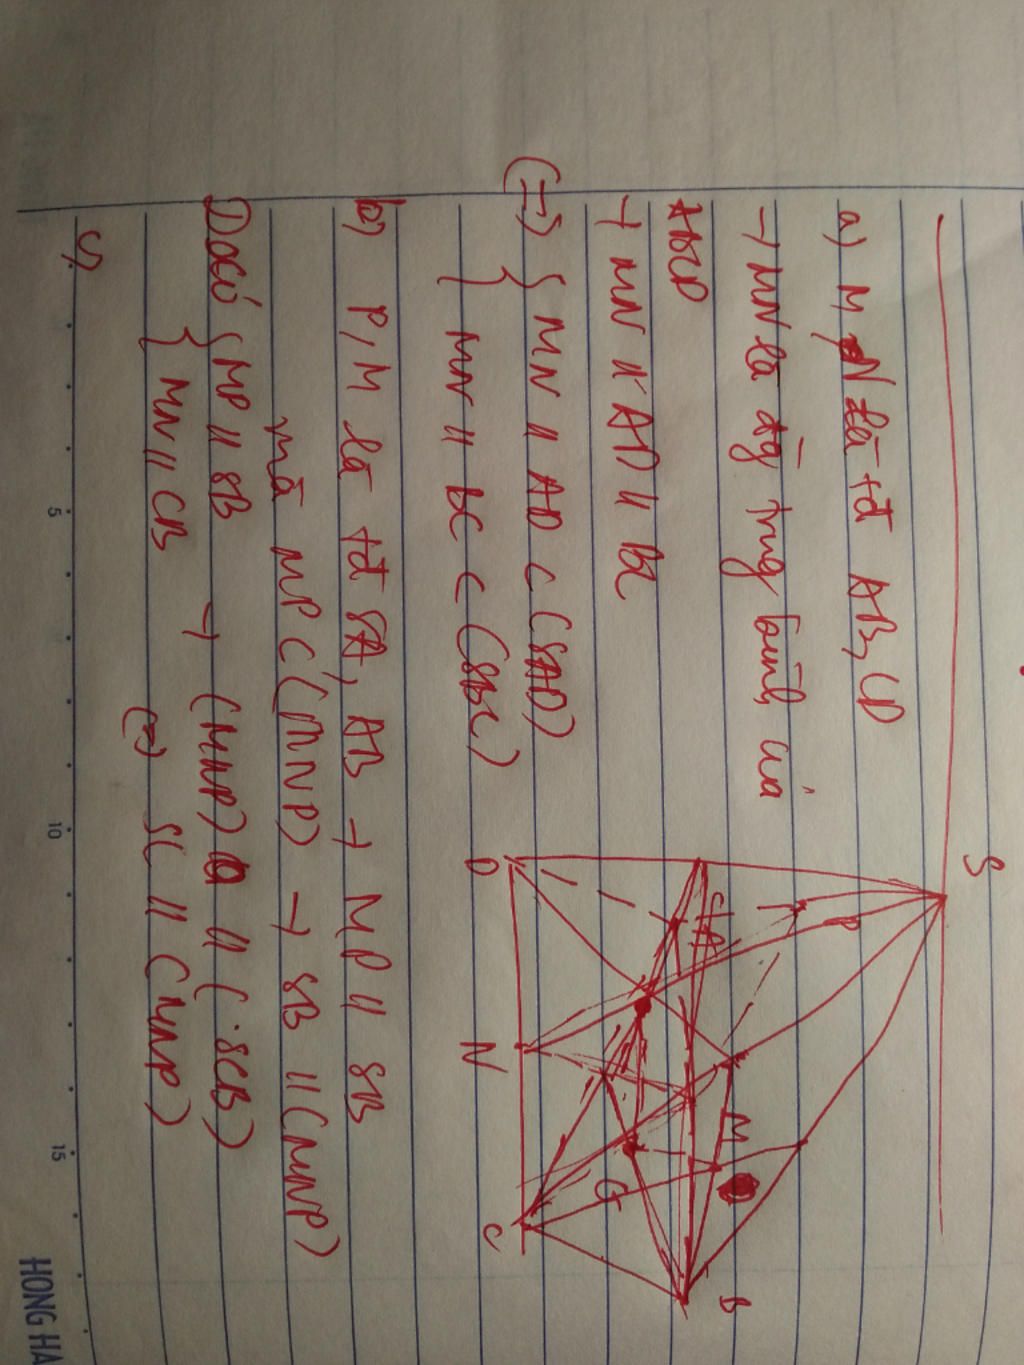 a) M, N là tđ AB, CD
→ MN là đg trung bình của
ABCD
→ MN // AD // BC
(=>) { MN // AD ⊂ (SAD)
{ MN // BC ⊂ (SBC)
b) P, M là tđ SA, AB → MP // SB
mà MP ⊂ (MNP) → SB // (MNP)
Do có { MP // SB → (MNP) // (SCB)
{ MN // CB (=) SC // (MNP)
c)
S
P
A
D
N
M
G
C
B
5
10
15
HONG HA